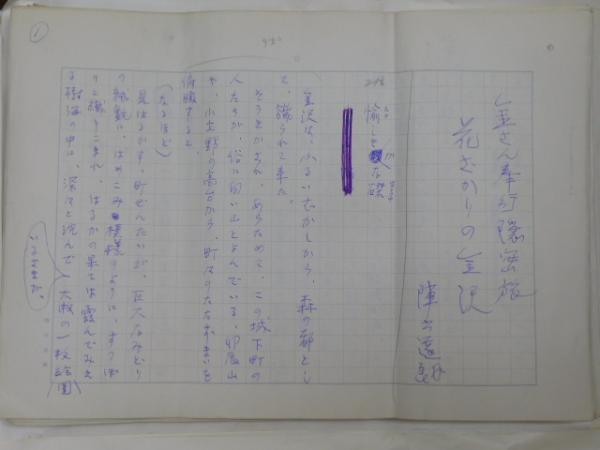 金さん奉行隠密旅
花ざかりの金沢
陣出達朗
愉しき な礫
金沢は、ふるいむかしから、森の都とし
て、謳られて来た。
そうきかされ、あらためて、この城下町の
人たちが、俗に向い山とよんでいる、卯辰山
や、小立野の高台から、町なみのたたずまいを
俯瞰すると
（なるほど）
見はるかす、町ぜんたいが、巨大なみどり
の絨毯に、はめこみ模様のように、すっぽ
りと織りこまれ、はるかの果ては霞んでみえ
る樹海の中に、深々と沈んで
いるさまが、
大城の一枚絵図